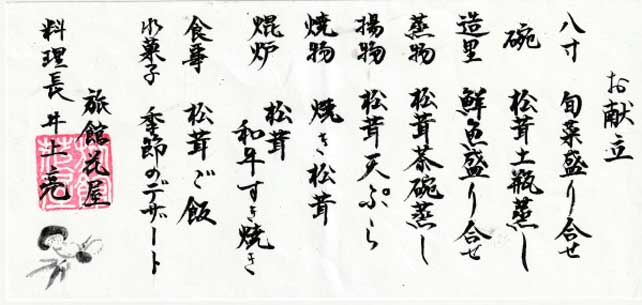 お献立
八寸 旬菜盛り合せ
碗 松茸土瓶蒸し
造里 鮮魚盛り合せ
蒸物 松茸茶碗蒸し
揚物 松茸天ぷら
焼物 焼き松茸
焜炉 松茸
和牛すき焼き
食事 松茸ご飯
水菓子 季節のデザート
旅館花屋
料理長 井上亮